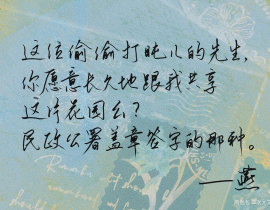 这位偷偷打盹儿的先生,
你愿意长久地跟我共享
这片花园么?
民政公署盖章签字的那种。
——燕